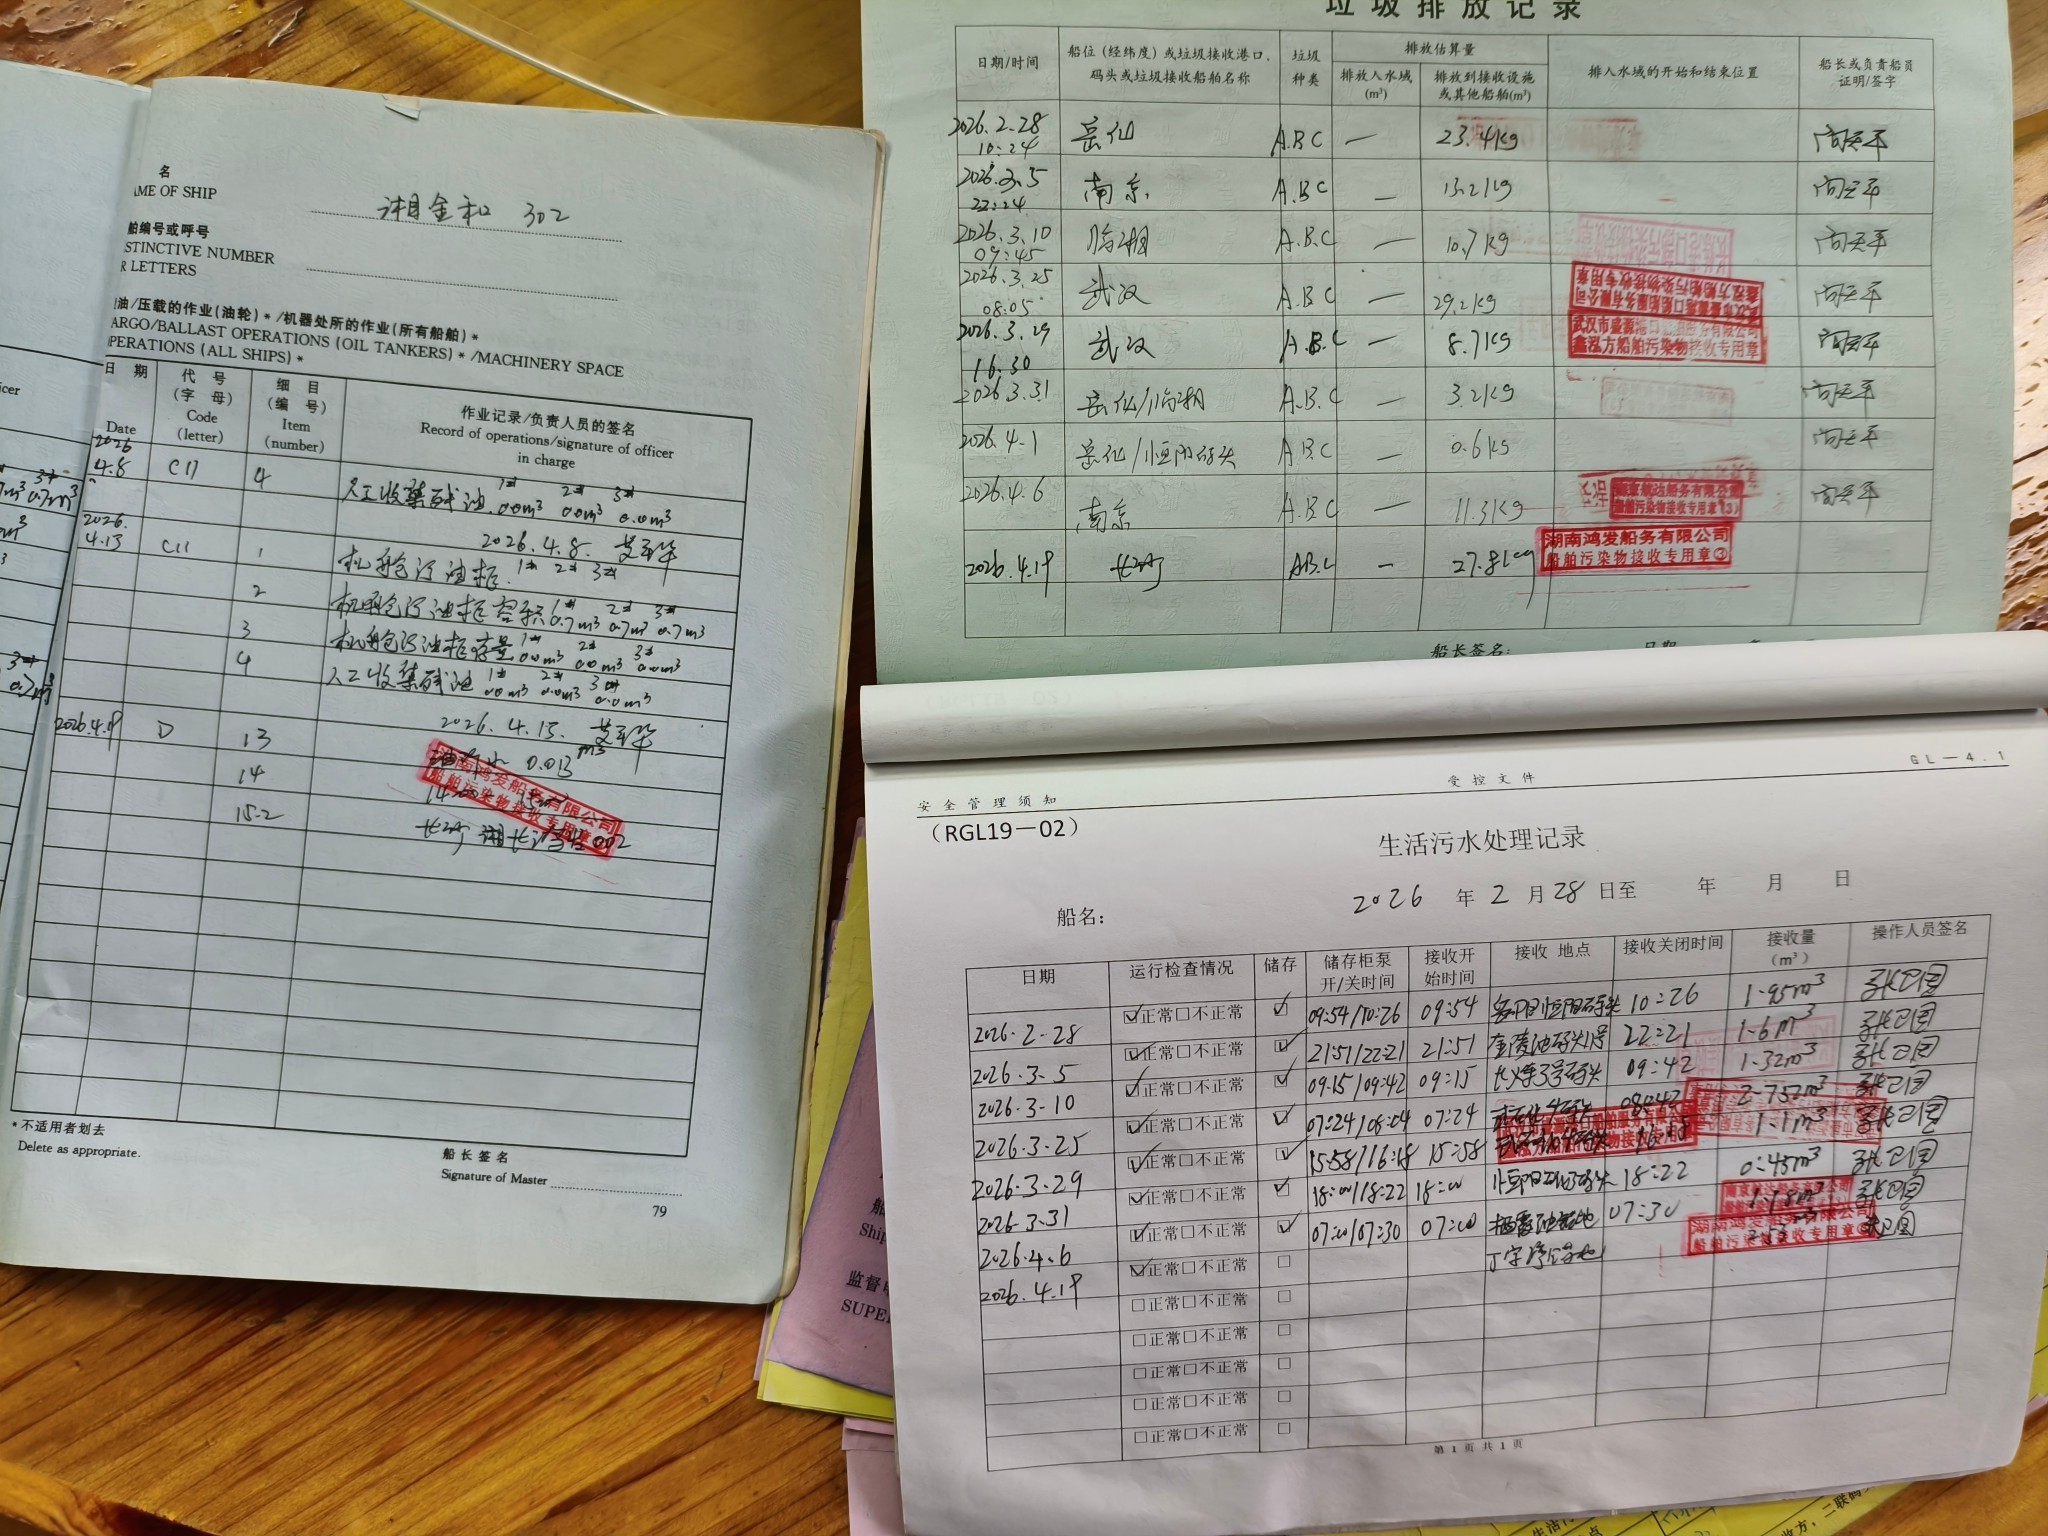 名
AME OF SHIP
湘金和 302
船编号或呼号
STINCTIVE NUMBER
R LETTERS
油/压载的作业(油轮)* /机器处所的作业(所有船舶)*
ARGO/BALLAST OPERATIONS (OIL TANKERS)* /MACHINERY SPACE
OPERATIONS (ALL SHIPS)*
日 期
Date
代 号
(字 母)
Code
(letter)
细 目
(编 号)
Item
(number)
作业记录/负责人员的签名
Record of operations/signature of officer
in charge
2026
4.8 C11 4 人工收集残油 1# 0.0m³ 2# 0.0m³ 3# 0.0m³
2026.4.8.
2026.
4.13 C11 1 机舱污油柜. 1# 2# 3#
2 机舱污油柜容积 1# 0.7m³ 2# 0.7m³ 3# 0.7m³
3 机舱污油柜存量 1# 0.0m³ 2# 0.0m³ 3# 0.0m³
4 人工收集残油 1# 0.0m³ 2# 0.0m³ 3# 0.0m³
2026.4.13.
2026.4.19 D 13 0.013 m³
14
15.2 长沙 002
湖南鸿发船务有限公司
船舶污染物接收专用章
*不适用者划去
Delete as appropriate.
船 长 签 名
Signature of Master
79
垃圾排放记录
日期/时间
船位(经纬度)或垃圾接收港口、
码头或垃圾接收船舶名称
垃圾
种类
排放估算量
排放入水域
(m³)
排放到接收设施
或其他船舶(m³)
排入水域的开始和结束位置
船长或负责船员
证明/签字
2026.2.28
10:24 岳化 A.B.C — 23.4kg
2026.3.5
22:24 南京 A.B.C — 13.2kg
2026.3.10
09:45 临湘 A.B.C — 10.7kg
2026.3.25
08:05 武汉 A.B.C — 29.2kg
2026.3.29
16:30 武汉 A.B.C — 8.7kg
2026.3.31 岳化/临湘 A.B.C — 3.2kg
2026.4.1 岳化/恒阳码头 A.B.C — 0.6kg
2026.4.6 南京 A.B.C — 11.3kg
2026.4.19 长沙 A.B.C — 27.8kg
武汉市盛源港口船舶服务有限公司
鑫泓方船舶污染物接收专用章
武汉市盛源港口船舶服务有限公司
鑫泓方船舶污染物接收专用章
南京航达船务有限公司
船舶污染物接收专用章(3)
湖南鸿发船务有限公司
船舶污染物接收专用章③
船长签名:
安全管理须知
受控文件
GL—4.1
(RGL19—02)
生活污水处理记录
2026 年 2 月 28 日至 年 月 日
船名:
日期
运行检查情况
储存
储存柜泵
开/关时间
接收开
始时间
接收 地点
接收关闭时间
接收量
(m³)
操作人员签名
2026.2-28 ☑正常□不正常 ☑ 09:54/10:26 09:54 岳阳恒阳码头 10:26 1.95m³ 张卫国
2026.3.5 ☑正常□不正常 ☑ 21:51/22:21 21:51 金陵油码头1号 22:21 1.6m³ 张卫国
2026.3-10 ☑正常□不正常 ☑ 09:15/09:42 09:15 长炼3号码头 09:42 1.32m³ 张卫国
2026.3-25 ☑正常□不正常 ☑ 07:24/08:04 07:24 2.752m³ 张卫国
2026.3.29 ☑正常□不正常 ☑ 15:58/16:18 15:58 16:18 1.1m³ 张卫国
2026.3.31 ☑正常□不正常 ☑ 18:00/18:22 18:00 18:22 0.45m³ 张卫国
2026.4.6 ☑正常□不正常 ☑ 07:00/07:30 07:00 栖霞油基地 07:30 1.18m³ 张卫国
2026.4.19 ☑正常□不正常 □ 丁字湾 张卫国
□正常□不正常 □
□正常□不正常 □
□正常□不正常 □
□正常□不正常 □
□正常□不正常 □
湖南鸿发船务有限公司
船舶污染物接收专用章
第 1 页 共 1 页
船
Ship
监督
SUPE